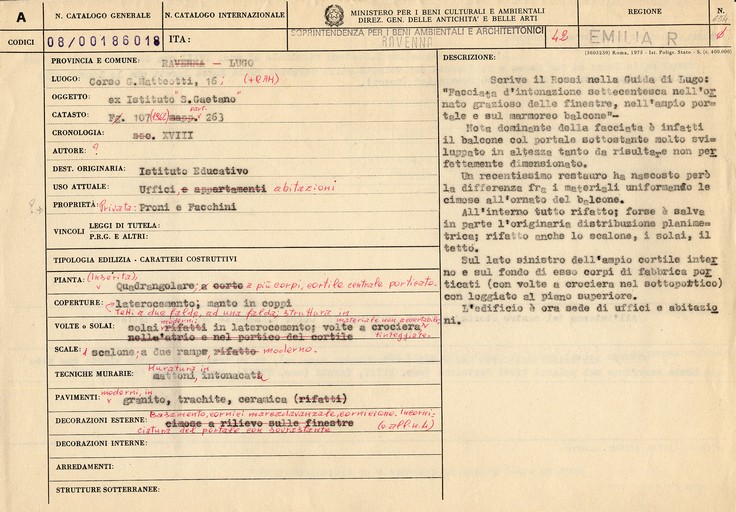 A
N. CATALOGO GENERALE
N. CATALOGO INTERNAZIONALE
MINISTERO PER I BENI CULTURALI E AMBIENTALI
DIREZ. GEN. DELLE ANTICHITA' E BELLE ARTI
REGIONE
N.
CODICI
08/00186018
ITA:
SOPRINTENDENZA PER I BENI AMBIENTALI E ARCHITETTONICI
RAVENNA
42
EMILIA R
(3603239) Roma, 1975 - Ist. Poligr. Stato - S. (c. 400.000)
PROVINCIA E COMUNE: RAVENNA - LUGO
LUOGO: Corso G.Matteotti, 16; (+RAH)
OGGETTO: ex Istituto "S.Gaetano"
CATASTO: Fg. 107 (1962) mapp. part. 263
CRONOLOGIA: sec. XVIII
AUTORE: ?
DEST. ORIGINARIA: Istituto Educativo
USO ATTUALE: Uffici, e appartamenti abitazioni
PROPRIETÀ: Privata: Proni e Facchini
VINCOLI
LEGGI DI TUTELA:
P.R.G. E ALTRI:
TIPOLOGIA EDILIZIA - CARATTERI COSTRUTTIVI
PIANTA: (inserita),
Quadrangolare; a corte a più corpi, cortile centrale porticato.
COPERTURE: laterocemento; manto in coppi
Tetti a due falde, ad una falda; struttura in
VOLTE o SOLAI: solai rifatti moderni in laterocemento; volte a crociera
nelle'atrio e nel portico del cortile
tinteggiate.
SCALE: 1 scalone; a due rampe, rifatto moderno.
TECNICHE MURARIE: Muratura in
mattoni, intonacata
PAVIMENTI: moderni, in
granito, trachite, ceramica (rifatti)
DECORAZIONI ESTERNE: Basamento, cornici marcadavanzale, cornicione. Incorni-
cimose a rilievo sulle finestre (v. all. n. 4)
ciatura del portale con sovrastante
DECORAZIONI INTERNE:
ARREDAMENTI:
STRUTTURE SOTTERRANEE:
DESCRIZIONE:
Scrive il Rossi nella Guida di Lugo:
"Facciata d'intonazione settecentesca nell'or
nato grazioso delle finestre, nell'ampio por-
tale e sul marmoreo balcone"-
Nota dominante della facciata è infatti
il balcone col portale sottostante molto svi-
luppato in altezza tanto da risultare non per
fettamente dimensionato.
Un recentissimo restauro ha nascosto però
la differenza fra i materiali uniformando le
cimose all'ornato del balcone.
All'interno tutto rifatto; forse è salva
in parte l'originaria distribuzione planime-
trica; rifatto anche lo scalone, i solai, il
tetto.
Sul lato sinistro dell'ampio cortile inter
no e sul fondo di esso corpi di fabbrica por
ticati (con volte a crociera nel sottoportico)
con loggiato al piano superiore.
L'edificio è ora sede di uffici e abitazio
ni.